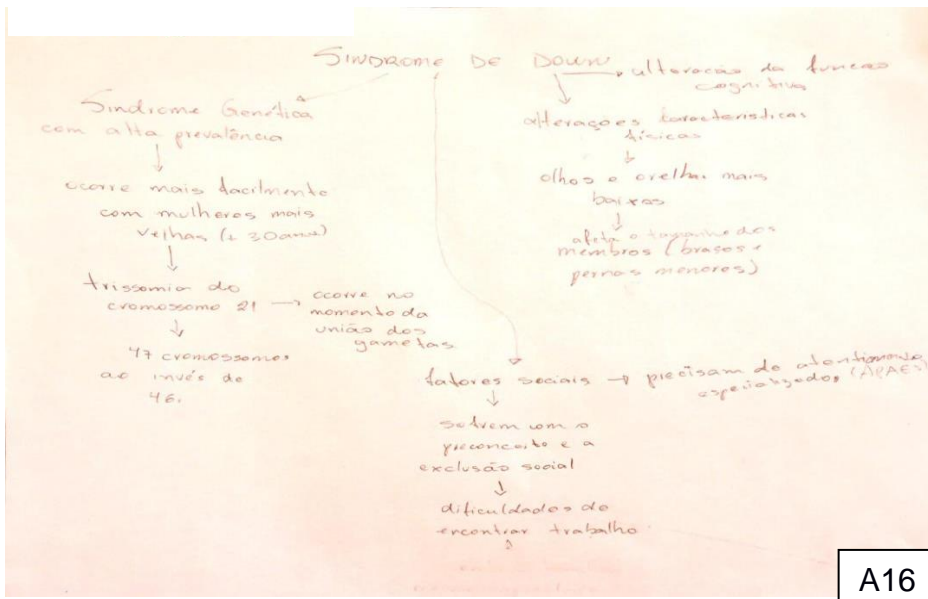 SINDROME DE DOWN
alteração da funcao
cognitiva
Sindrome Genética
com alta prevalência
ocorre mais facilmente
com mulheres mais
velhas (+ 30 anos)
trissomia do
cromossomo 21
ocorre no
momento da
união dos
gametas
47 cromossomos
ao invés de
46.
alterações caracteristicas
fisicas
olhos e orelhas mais
baixos
afeta o tamanho dos
membros (brasos e
pernas menores)
fatores sociais
precisam de
especializados (APAEs)
sofrem com o
preconceito e a
exclusão social
dificuldades de
encontrar trabalho
A16